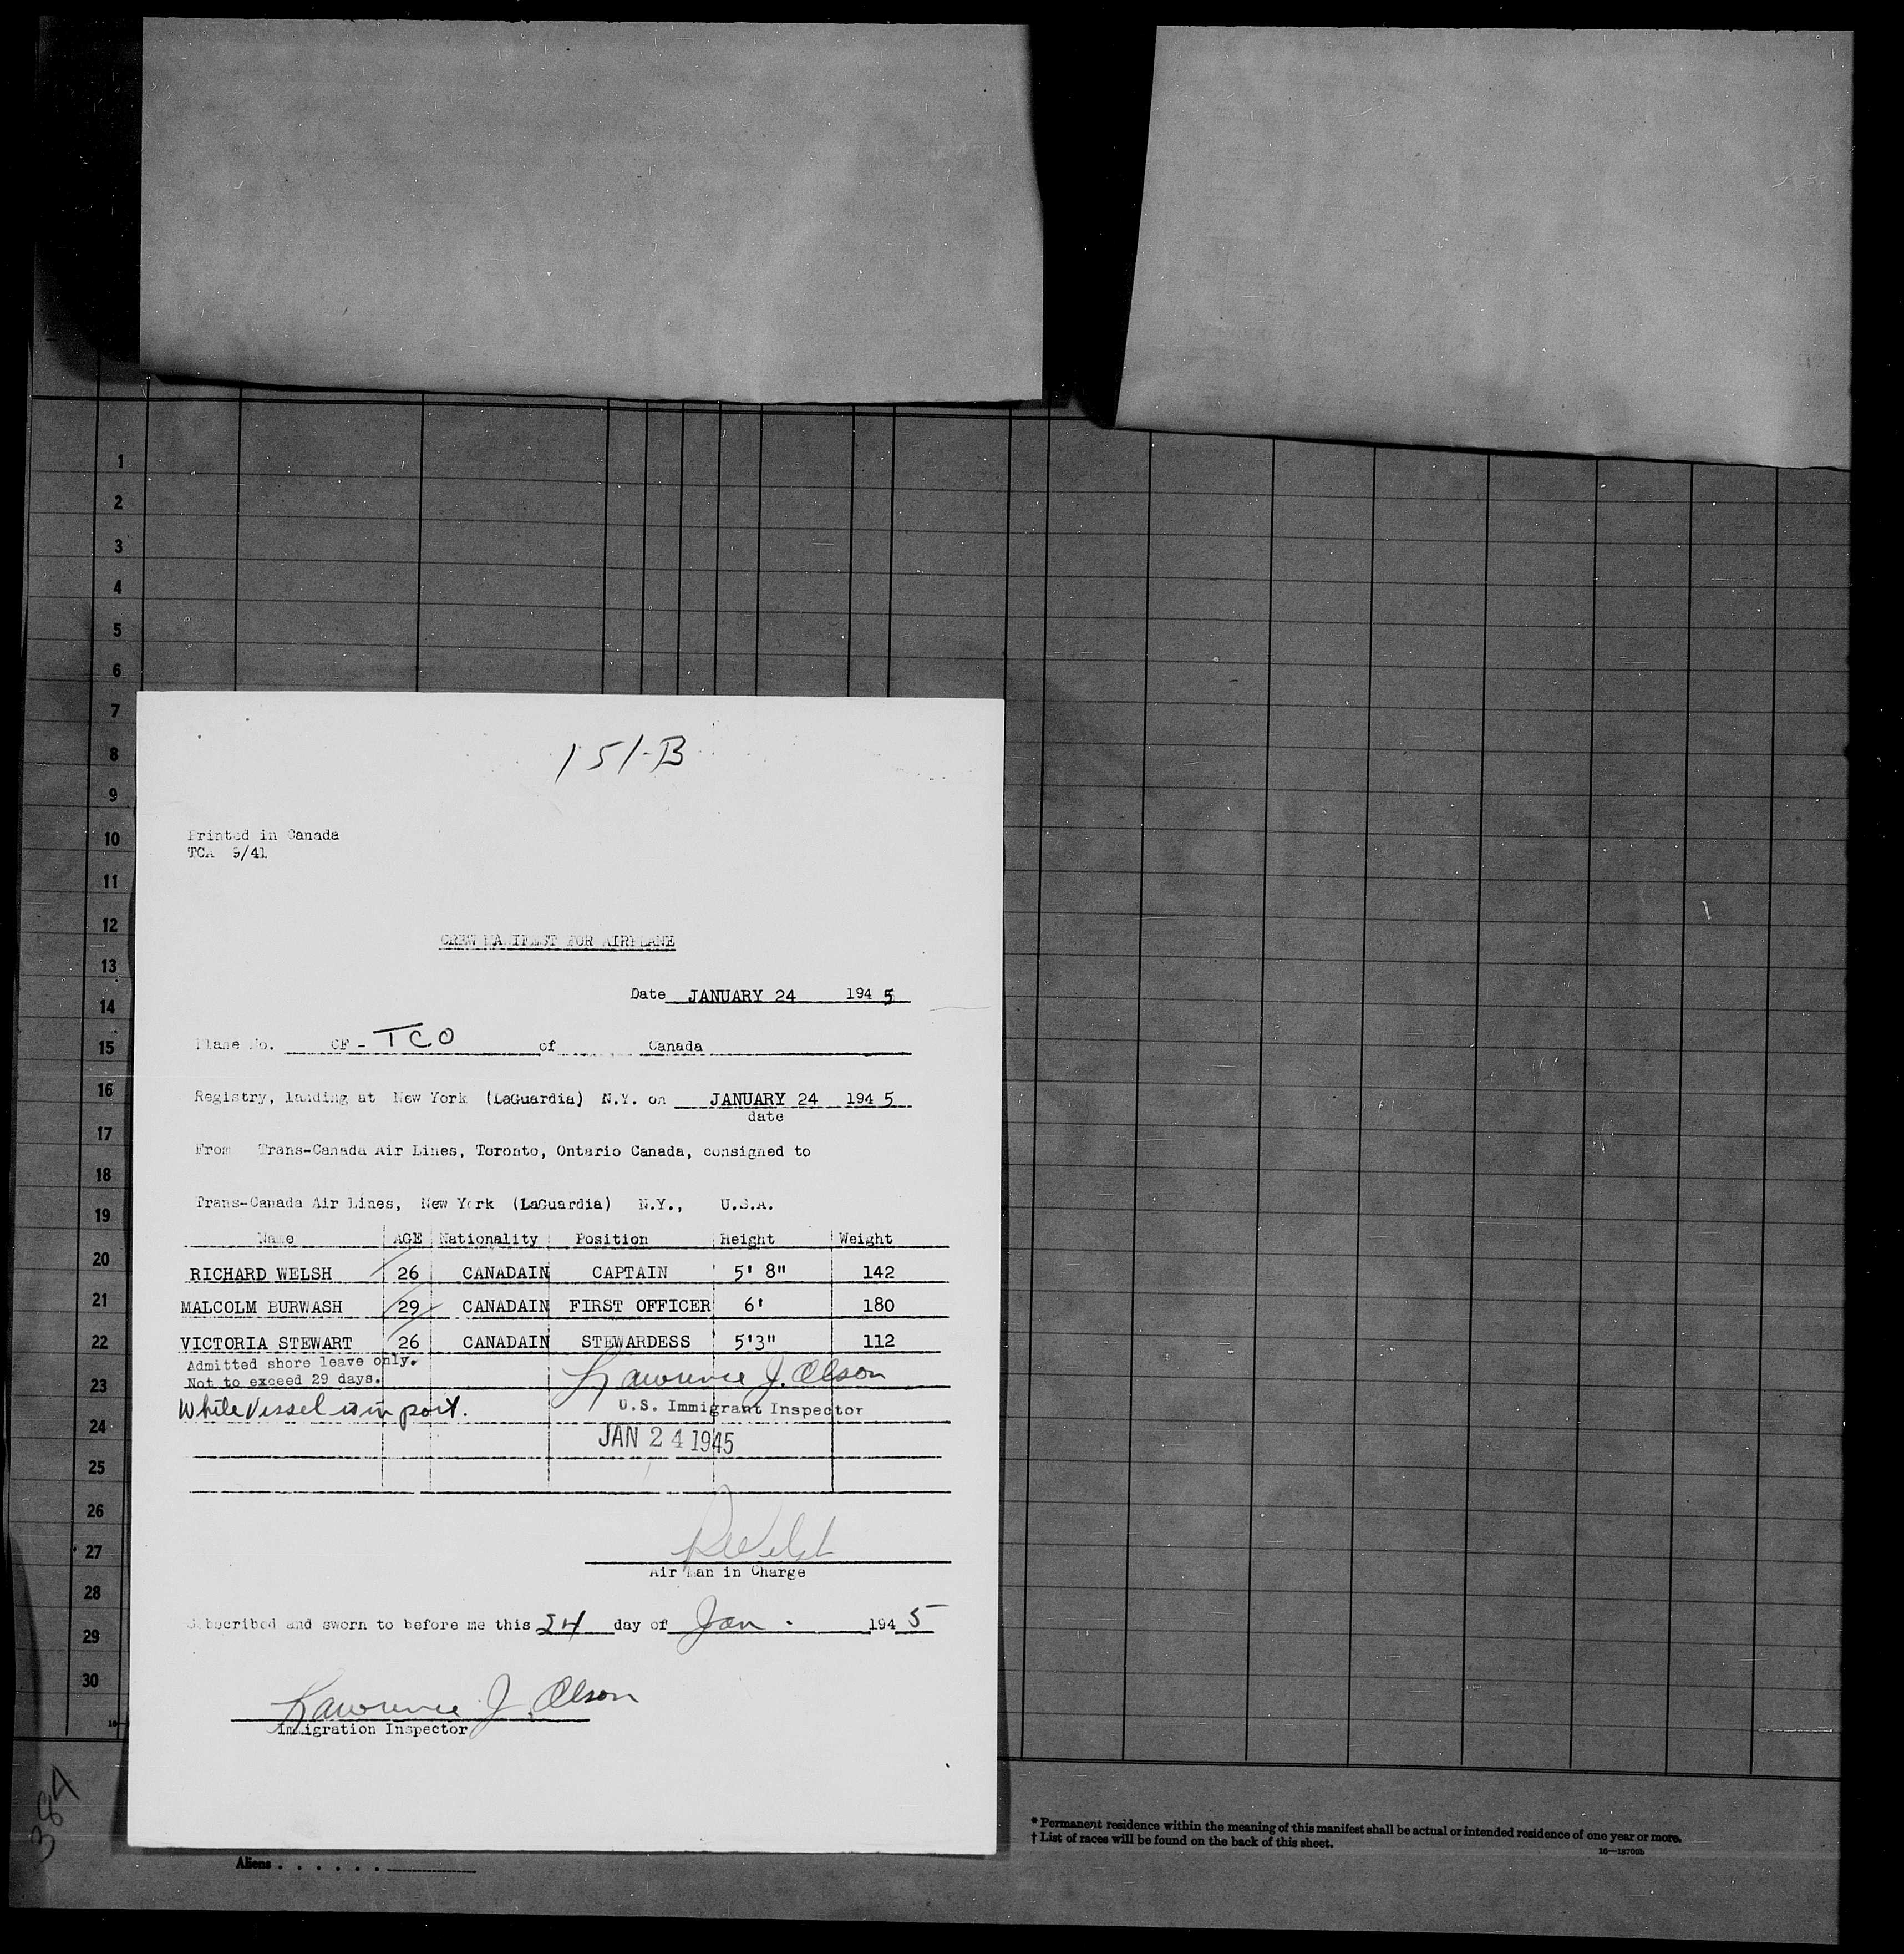 1
2
3
4
5
6
7
8
9
10
11
12
13
14
15
16
17
18
19
20
21
22
23
24
25
26
27
28
29
30
151-B
Printed in Canada
TCA 9/41
CREW MANIFEST FOR AIRPLANE
Date JANUARY 24 194 5
Plane No. CF - TCO of Canada
Registry, landing at New York (LaGuardia) N.Y. on JANUARY 24 194 5
date
From Trans-Canada Air Lines, Toronto, Ontario Canada, consigned to
Trans-Canada Air Lines, New York (LaGuardia) N.Y., U.S.A.
Name AGE Nationality Position Height Weight
RICHARD WELSH 26 CANADAIN CAPTAIN 5' 8" 142
MALCOLM BURWASH 29 CANADAIN FIRST OFFICER 6' 180
VICTORIA STEWART 26 CANADAIN STEWARDESS 5'3" 112
Admitted shore leave only.
Not to exceed 29 days. Lawrence J. Olson
While Vessel is in port. U.S. Immigrant Inspector
JAN 24 1945
R Welsh
Air Man in Charge
Subscribed and sworn to before me this 24 day of Jan. 194 5
Lawrence J. Olson
Immigration Inspector
384
Aliens . . . . . .
* Permanent residence within the meaning of this manifest shall be actual or intended residence of one year or more.
† List of races will be found on the back of this sheet.